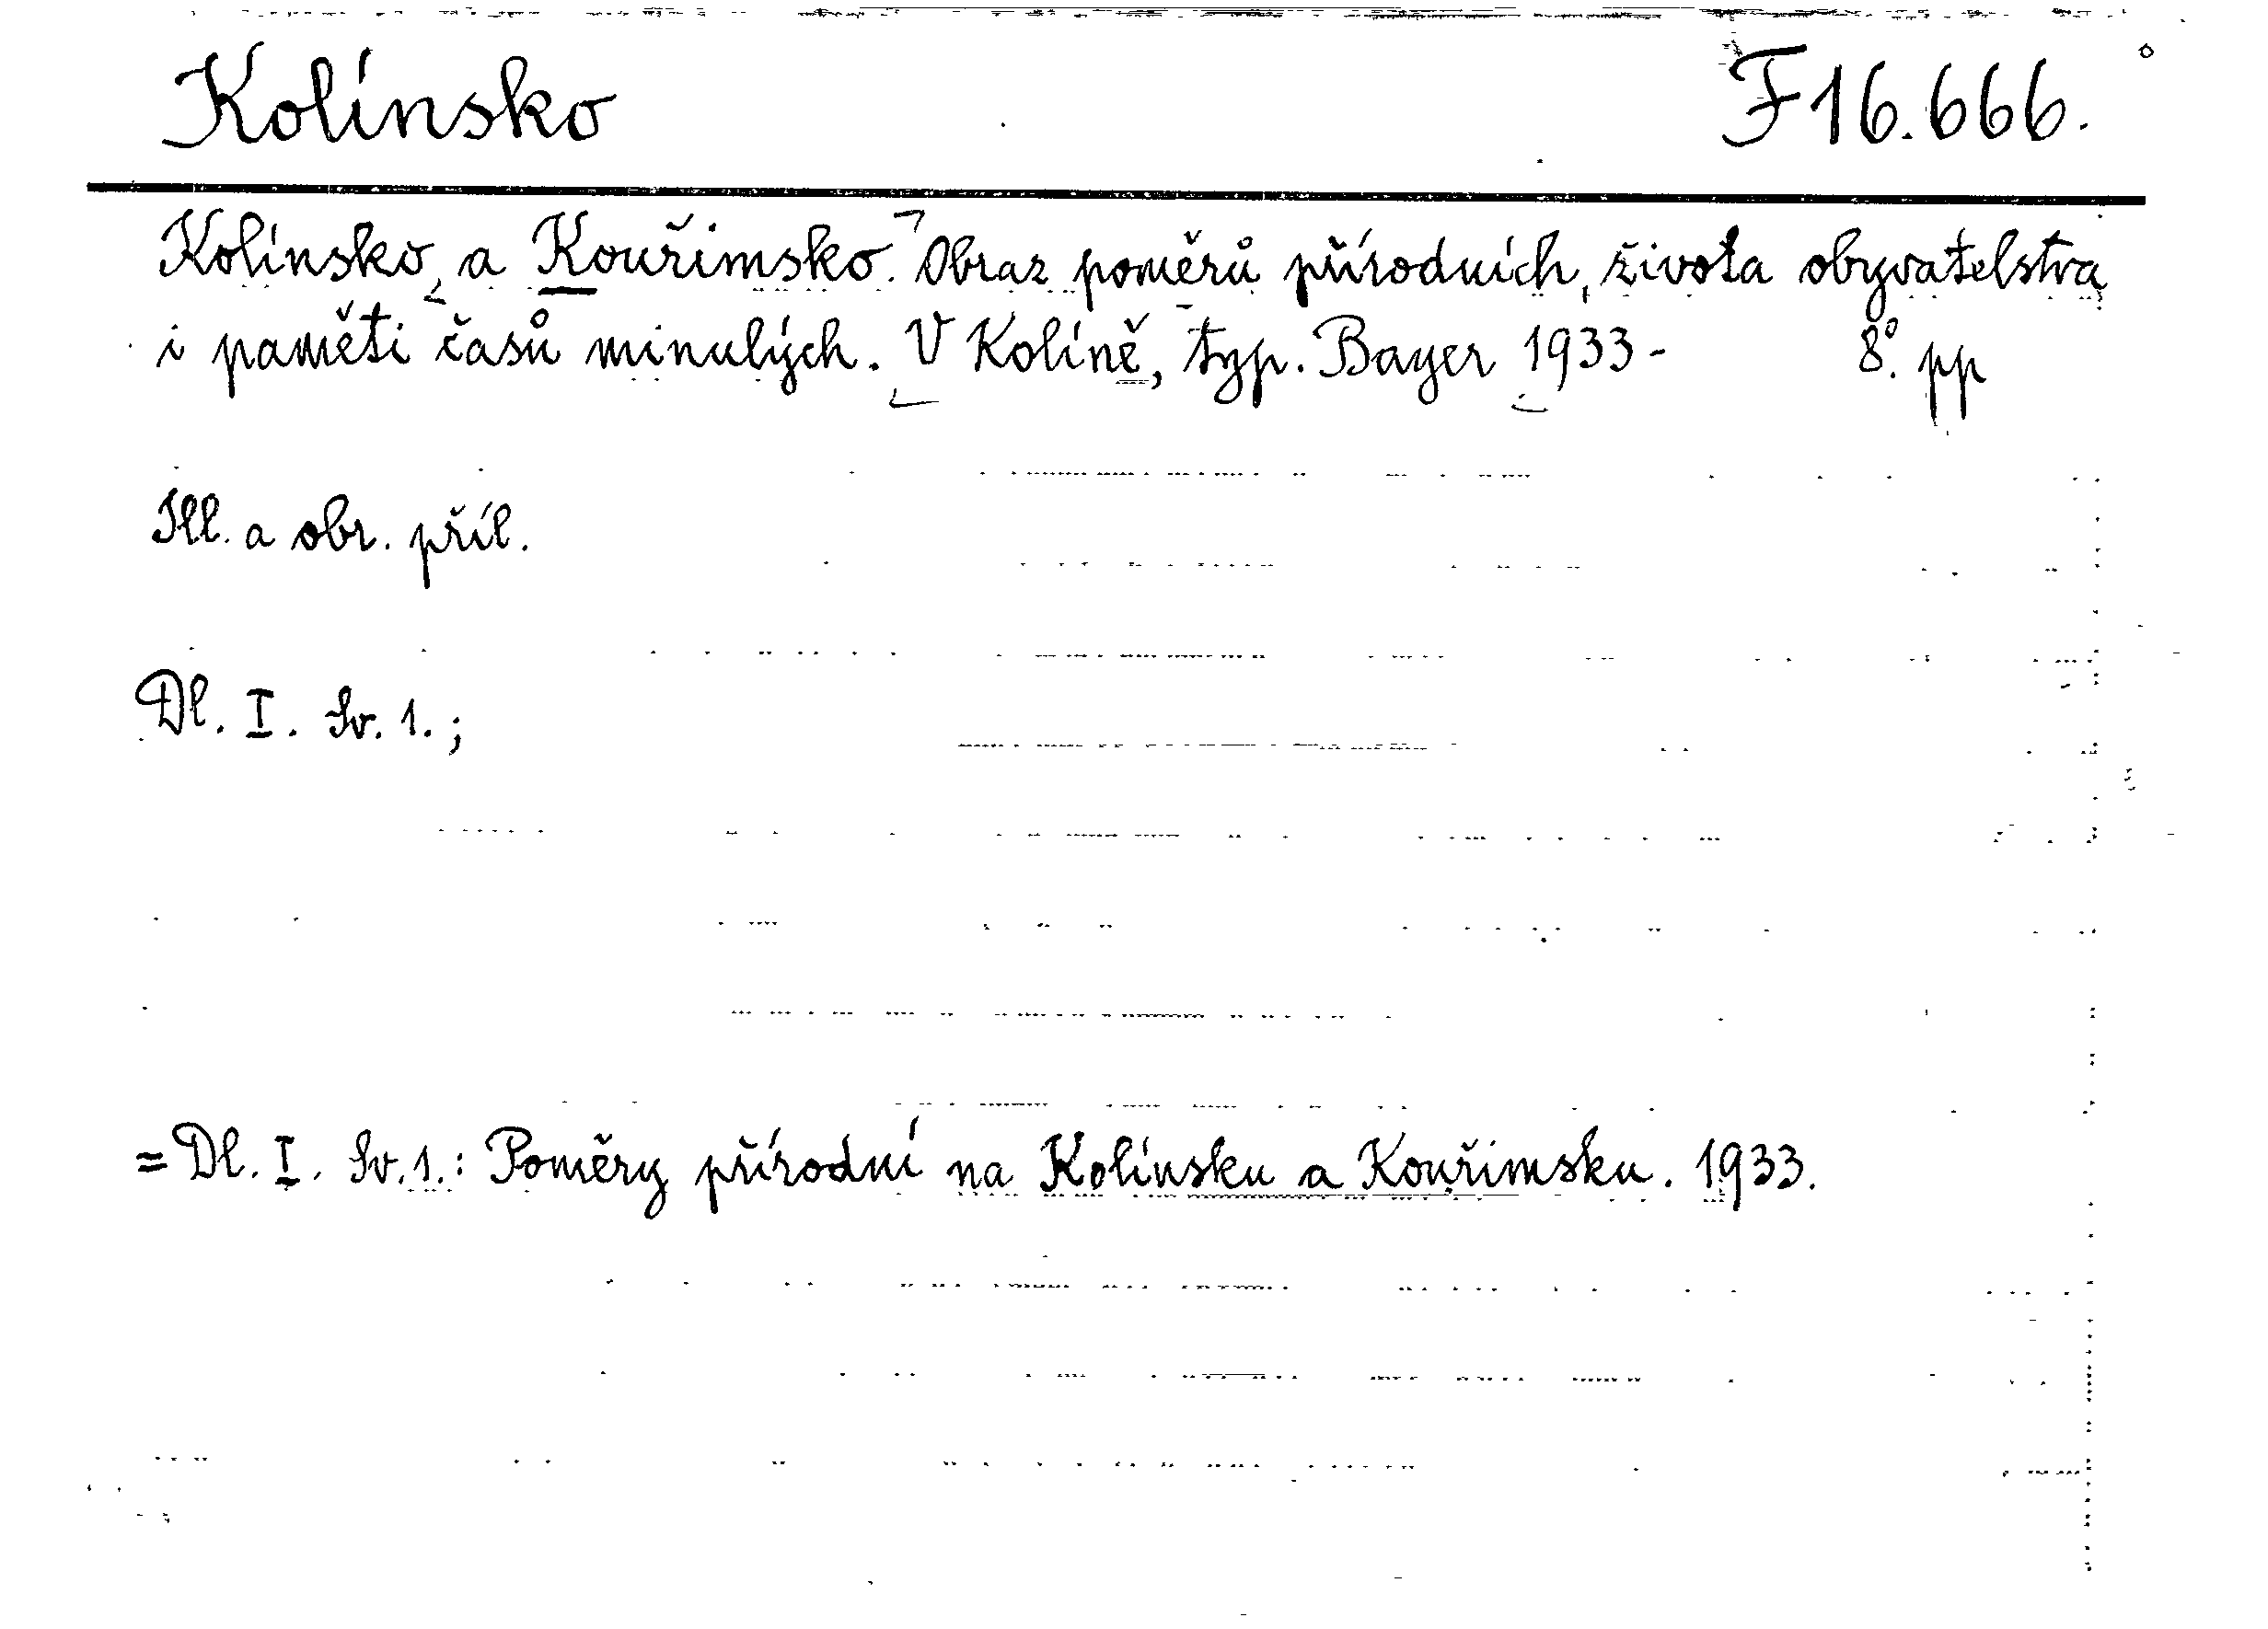 Kolínsko F 16.666.
Kolínsko a Kouřimsko. Obraz poměrů přírodních, života obyvatelstva
i paměti časů minulých. V Kolíně, typ. Bayer 1933- 8°. pp
Ill. a obr. příl.
Dl. I. Sv. 1.;
= Dl. I. Sv. 1.: Poměry přírodní na Kolínsku a Kouřimsku. 1933.